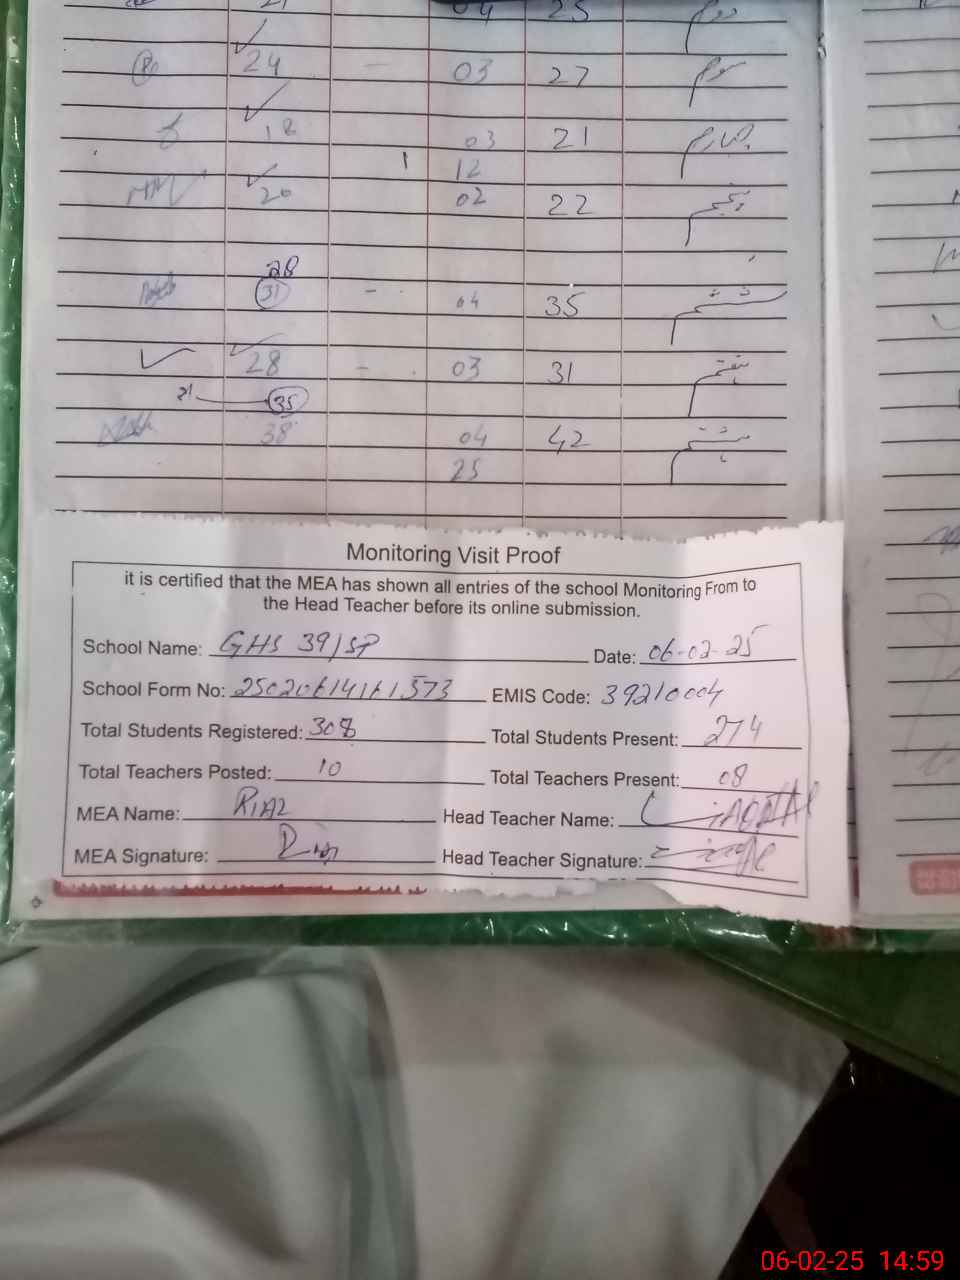 21 04 25 دوم
24 - 03 27 سوم
18 03 21 چہارم
12
20 02 22 پنجم
28
31 - 04 35 ششم
28 - 03 31 ہفتم
31 35
38 04 42 ہشتم
25
Monitoring Visit Proof
it is certified that the MEA has shown all entries of the school Monitoring From to
the Head Teacher before its online submission.
School Name: GHS 39/SP Date: 06-02-25
School Form No: 25020614161573 EMIS Code: 39210004
Total Students Registered: 308 Total Students Present: 274
Total Teachers Posted: 10 Total Teachers Present: 08
MEA Name: RIAZ Head Teacher Name: LIAQAT Al
MEA Signature: Riaz Head Teacher Signature:
06-02-25 14:59